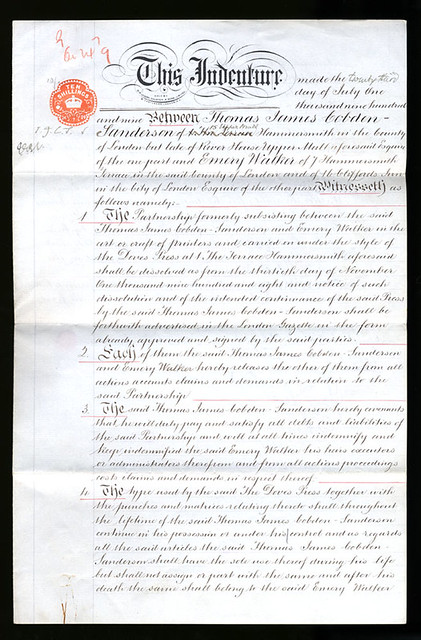 TEN
SHILLINGS
This Indenture made the twenty third
day of July One
thousand nine hundred
and nine Between Thomas James Cobden-
Sanderson of 15 Upper Mall Hammersmith in the county
of London but late of River House Upper Mall aforesaid Esquire
of the one part and Emery Walker of 7 Hammersmith
Terrace in the said county of London and of 16 Cliffords Inn
in the city of London Esquire of the other part Witnesseth as
follows namely:-
1. The Partnership formerly subsisting between the said
Thomas James Cobden-Sanderson and Emery Walker in the
art or craft of printers and carried on under the style of
the Doves Press at 1. The Terrace Hammersmith aforesaid
shall be dissolved as from the thirtieth day of November
One thousand nine hundred and eight and notice of such
dissolution and of the intended continuance of the said Press
by the said Thomas James Cobden-Sanderson shall be
forthwith advertised in the London Gazette in the form
already approved and signed by the said parties.
2. Each of them the said Thomas James Cobden-Sanderson
and Emery Walker hereby releases the other of them from all
actions accounts claims and demands in relation to the
said Partnership
3. The said Thomas James Cobden-Sanderson hereby covenants
that he will duly pay and satisfy all debts and liabilities of
the said Partnership and will at all times indemnify and
keep indemnified the said Emery Walker his heirs executors
or administrators therefrom and from all actions proceedings
costs claims and demands in respect thereof
4. The type used by the said The Doves Press together with
the punches and matrices relating thereto shall throughout
the lifetime of the said Thomas James Cobden-Sanderson
continue in his possession or under his control and as regards
all the said articles the said Thomas James Cobden-
Sanderson shall have the sole use thereof during his life
but shall not assign or part with the same and after his
death the same shall belong to the said Emery Walker